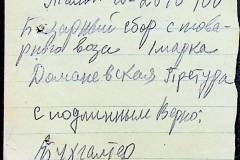 Базарный сбор с това-
рного воза 1 марка
Доманевская Претура
с подлинным верно:
Бухгалтер